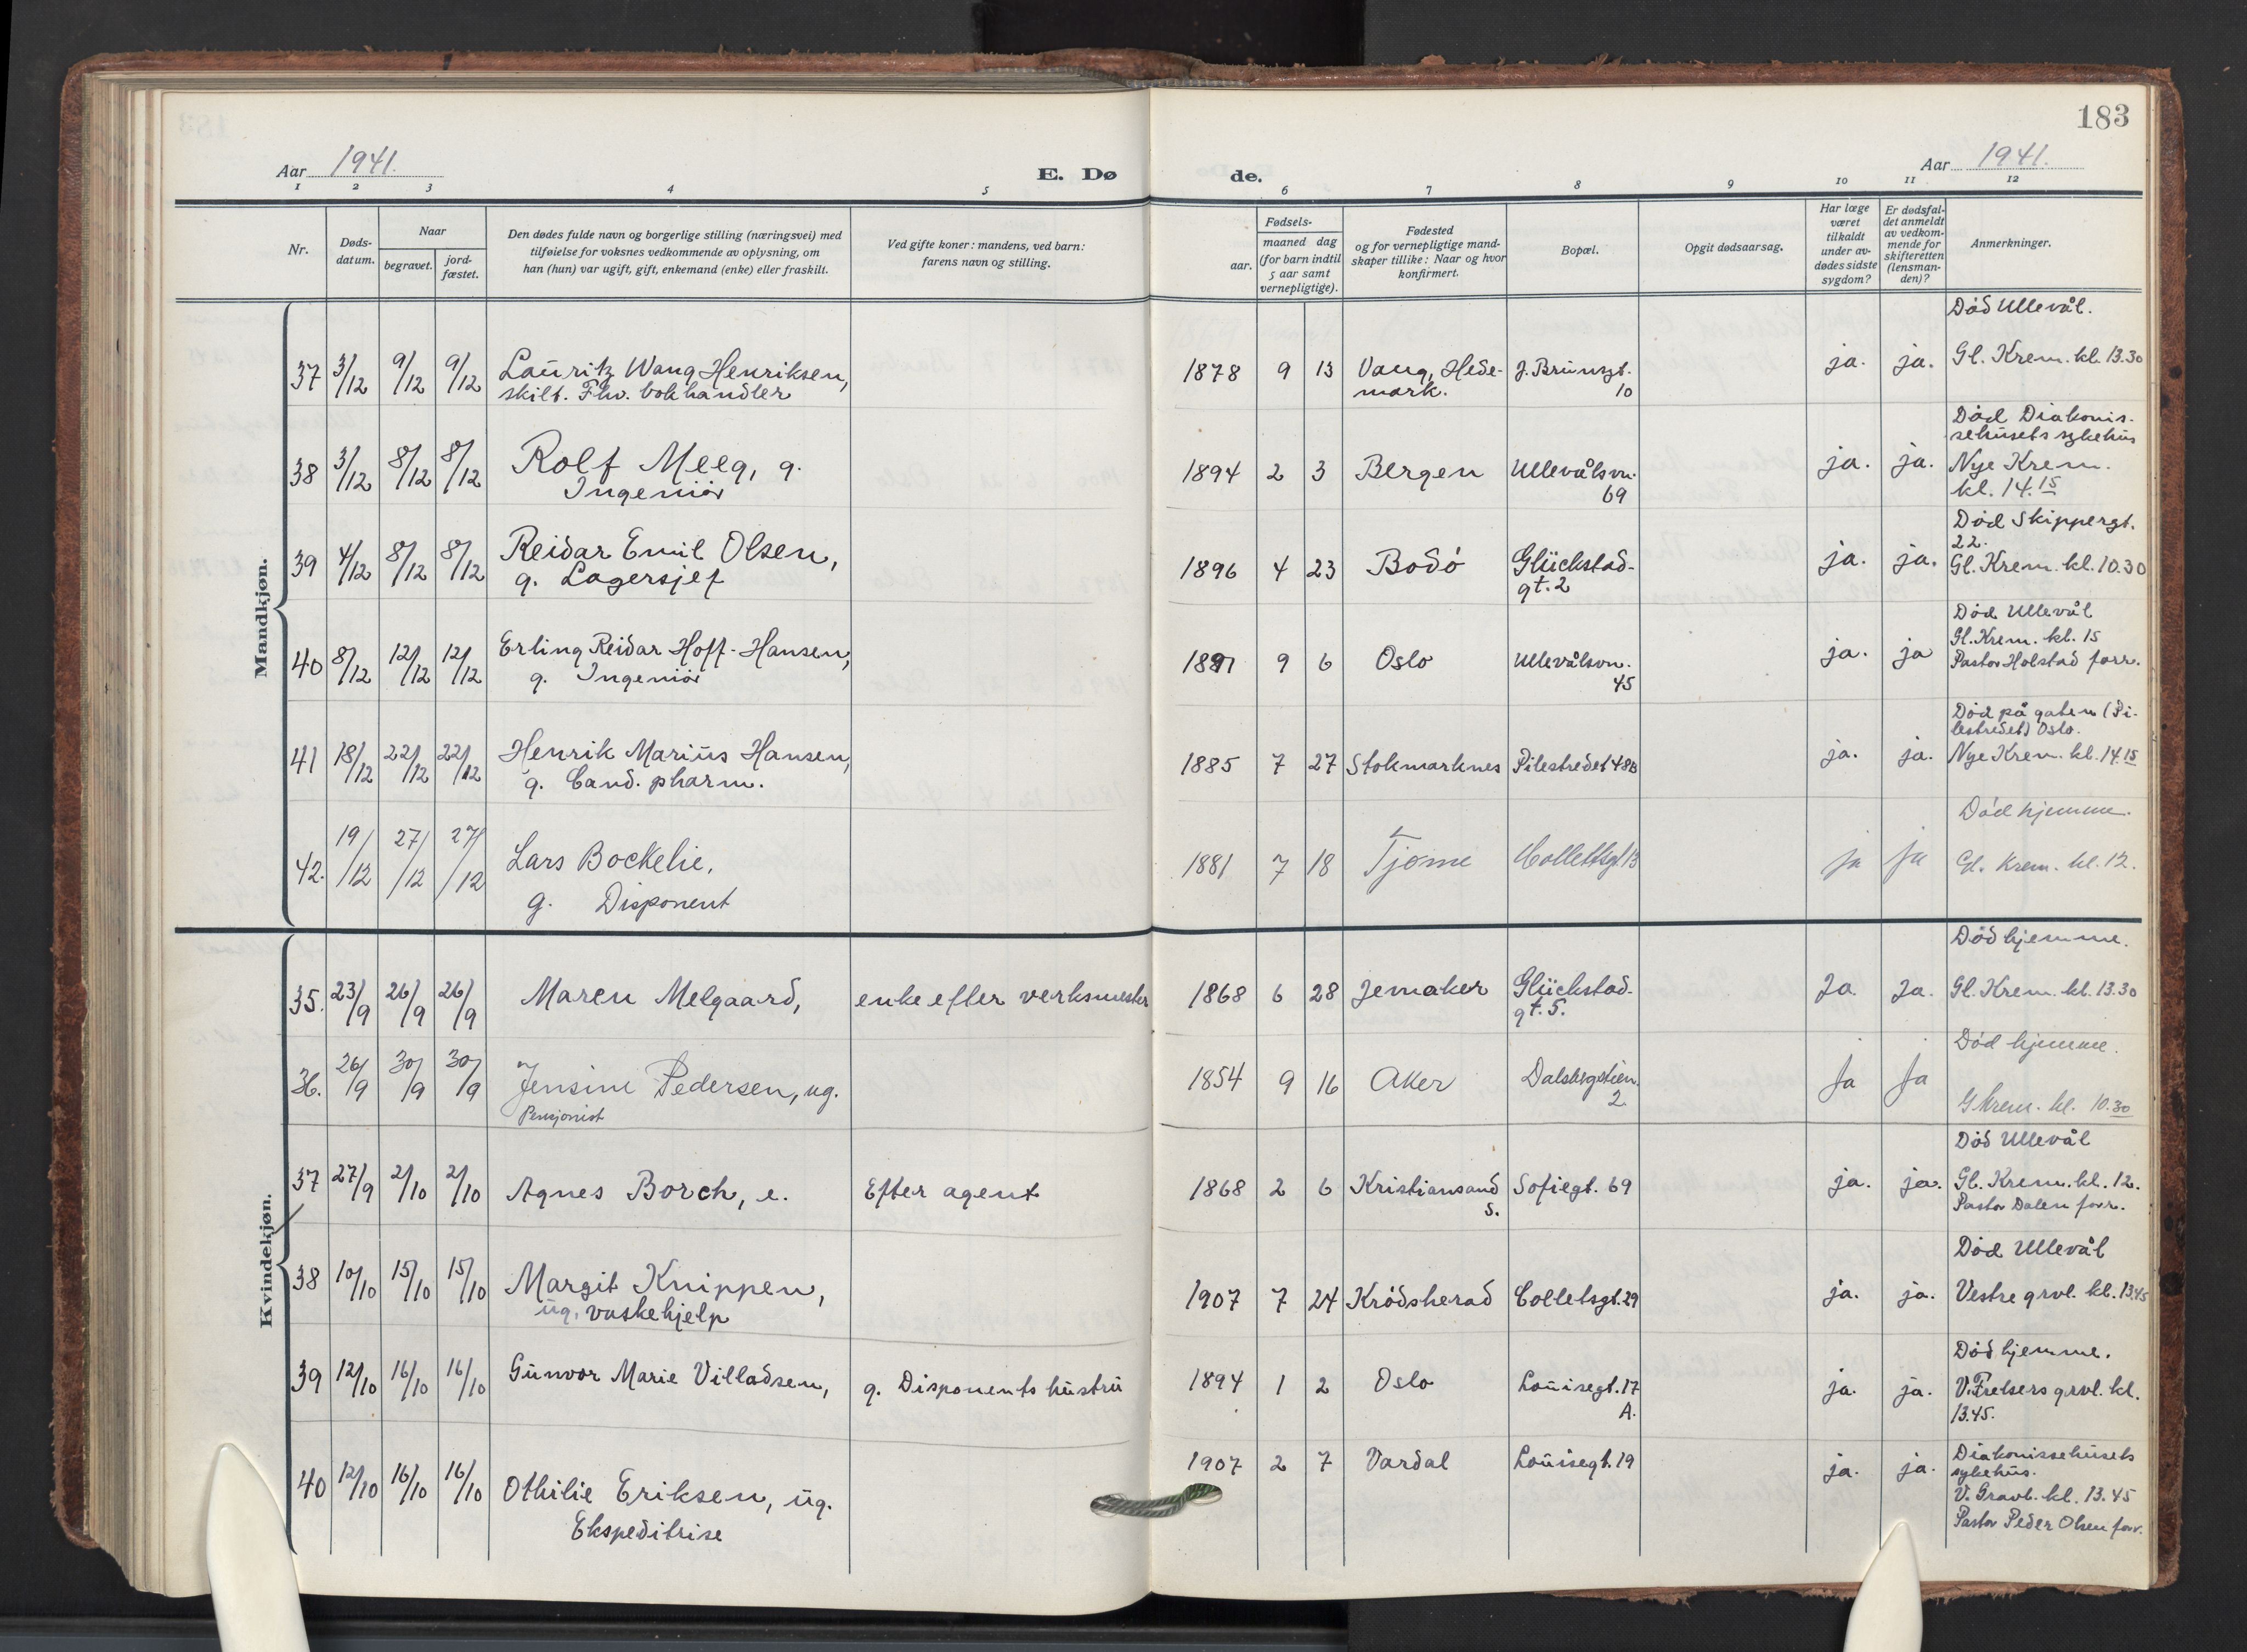 183
Aar 1941.
E. Dø
de.
Aar 1941.
1 2 3 4 5 6 7 8 9 10 11 12
Nr.
Døds-
datum.
Naar
begravet.
jord-
fæstet.
Den dødes fulde navn og borgerlige stilling (næringsvei) med
tilføielse for voksnes vedkommende av oplysning, om
han (hun) var ugift, gift, enkemand (enke) eller fraskilt.
Ved gifte koner: mandens, ved barn:
farens navn og stilling.
Fødsels-
aar.
maaned dag
(for barn indtil
5 aar samt
vernepligtige).
Fødested
og for vernepligtige mand-
skaper tillike: Naar og hvor
konfirmert.
Bopæl.
Opgit dødsaarsag.
Har læge
været
tilkaldt
under av-
dødes sidste
sygdom?
Er dødsfal-
det anmeldt
av vedkom-
mende for
skifteretten
(lensman-
den)?
Anmerkninger.
Mandkjøn.
37 3/12 9/12 9/12 Lauritz Wang Henriksen,
skilt. Fhv. bokhandler
1878 9 13 Vang, Hede-
mark.
J. Brunsgt.
10
ja. ja.
Död Ullevål.
Gl. Krem. kl. 13.30
38 3/12 8/12 8/12 Rolf Meeg, g.
Ingeniör
1894 2 3 Bergen Ullevålsvn.
69
ja. ja.
Död Diakonis-
sehusets sykehus
Nye Krem.
kl. 14.15
39 4/12 8/12 8/12 Reidar Emil Olsen,
g. Lagersjef
1896 4 23 Bodö Glückstad-
gt. 2
ja. ja.
Död Skippergt.
22.
Gl. Krem. kl. 10.30
40 8/12 12/12 12/12 Erling Reidar Hoff-Hansen,
g. Ingeniör
1891 9 6 Oslo Ullevålsvn.
45
ja. ja
Död Ullevål
Gl. Krem. kl. 15
Pastor Holstad forr.
41 18/12 22/12 22/12 Henrik Marius Hansen,
g. Cand. pharm.
1885 7 27 Stokmarknes Pilestredet 48B
ja. ja.
Död på gaten (Pi-
lestredet) Oslo.
Nye Krem. kl. 14.15
42. 19/12 27/12 27/12 Lars Bockelie,
g. Disponent
1881 7 18 Tjöme Collettsgt. 13
ja ja
Död hjemme.
Gl. Krem. kl. 12.
Kvindekjøn.
35. 23/9 26/9 26/9 Maren Melgaard, enke efter verksmester
1868 6 28 Jemaker Glückstad-
gt. 5.
Ja. Ja.
Död hjemme.
Gl. Krem. kl. 13.30
36. 26/9 30/9 30/9 Jensine Pedersen, ug.
Pensjonist
1854 9 16 Aker Dalsbergstien
2.
Ja Ja
Död hjemme.
G Krem. kl. 10.30
37 27/9 2/10 2/10 Agnes Borch, e. Efter agent
1868 2 6 Kristiansand
S.
Sofiegt. 69
ja. ja.
Död Ullevål
Gl. Krem. kl. 12.
Pastor Dalen forr.
38 10/10 15/10 15/10 Margit Knippen,
ug. vaskehjelp
1907 7 24 Krödsherad Colletsgt. 29
ja. ja.
Död Ullevål
Vestre grvl. kl. 13.45
39 12/10 16/10 16/10 Gunvor Marie Villadsen, g. Disponents hustru
1894 1 2 Oslo Louisegt. 17
A.
ja. ja.
Död hjemme.
V. Frelsers grvl. kl.
13.45.
40 12/10 16/10 16/10 Othilie Eriksen, ug.
Ekspeditrise
1907 2 7 Vardal Louisegt. 19
ja. ja.
Diakonissehusets
sykehus.
V. Gravl. kl. 13.45
Pastor Peder Olsen forr.